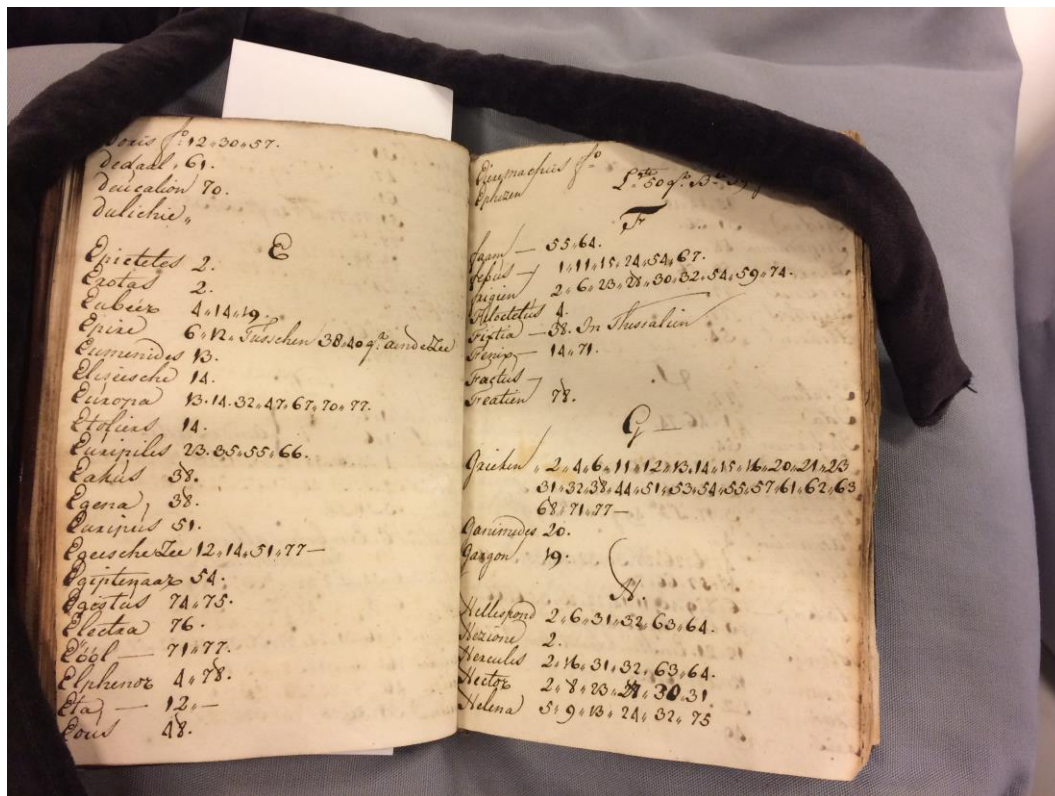 Doris fo. 12 " 30 " 57.
Dedaal " 61.
Deucation 70.
Dulichie "
E
Epictetes 2.
Erotas 2.
Eubeër 4 " 14 " 19.
Epire 6 " 12 " Tusschen 38 " 40 qr. aind e Zee
Eumenides 13.
Eliseesche 14.
Europa 13. 14. 32 " 47 " 67 " 70 " 77.
Etoliers 14.
Euripiles 23. 35 " 55 " 66.
Eakus 38.
Egena 38.
Euripus 51.
Egeesche Zee 12 " 14 " 51 " 77 —
Egiptenaar 54.
Egestus 74 " 75.
Electra 76.
Eööl — 71 " 77.
Elphenor 4 " 78.
Eta — 12 " —
Eous 48.
fo.
Ephizen 50
F
Faam — 55 " 64.
Febus — 1 " 11 " 15 " 24 " 54 " 67.
Frigien 2 " 6 " 23 " 28 " 30 " 32 " 54 " 59 " 74.
Filoctetus 4.
Fixtia — 38. In Thessalien
Fenix — 14 " 71.
Fractus —
Treatien 78.
G —
Grieken " 2 " 4 " 6 " 11 " 12 " 13 " 14 " 15 " 16 " 20 " 21 " 23
31 " 32 " 38 " 44 " 51 " 53 " 54 " 55 " 57 " 61 " 62 " 63
68 " 71 " 77 —
Ganimedes 20.
Gargon 19.
H.
Hellespond 2 " 6 " 31 " 32 " 63 " 64.
Hezione 2.
Hercules 2 " 16 " 31 " 32 " 63 " 64.
Hector 2 " 8 " 23 " 27 " 30 " 31
Helena 5 " 9 " 13 " 24 " 32 " 75